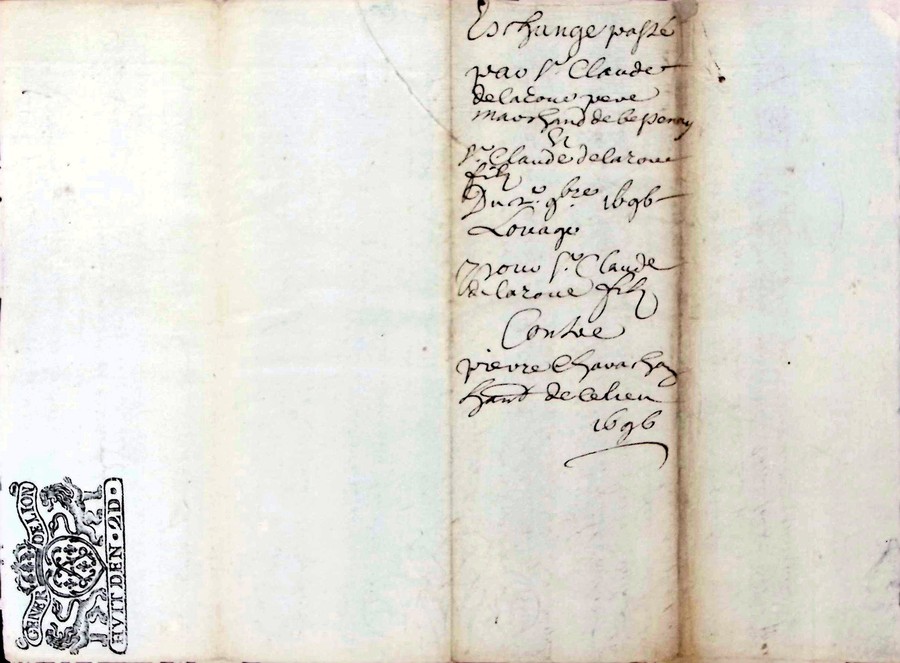 Eschange passé
par Sr Claude
delaroue pere
marchand de lespinay
Et
Sr Claude delaroue
filz
Du 2e 9bre 1696
Louage
pour Sr Claude
delaroue filz
Contre
pierre Chava
hant de
1696
GENER DE LION
HVIT DEN · 2D ·